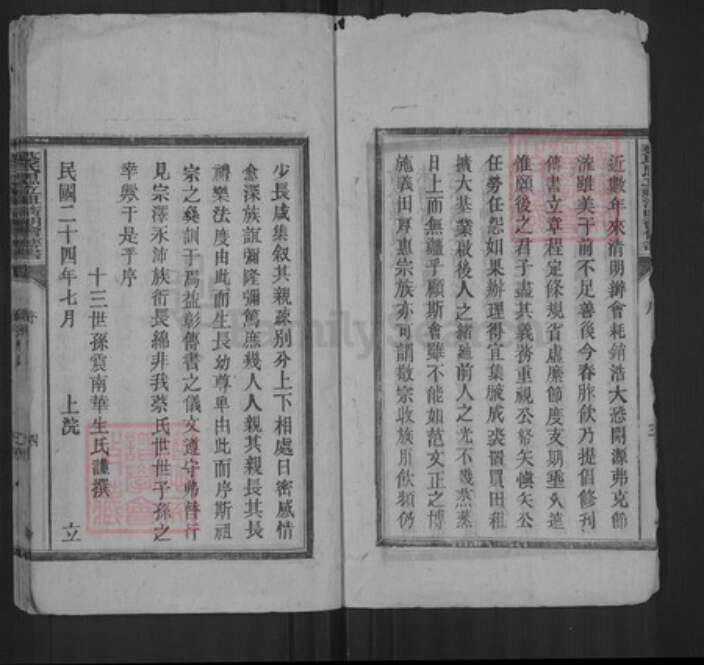 近數年來清明辦會耗銷浩大恐開源弗克節
流雖美于前不足善後今春胙飲乃提倡修刋
傳書立章程定條規省虛縻節度支期垂久遠
惟願後之君子盡其義務重視公帑矢愼矢公
任勞任怨如果辦理得宜集腋成裘個買田租
擴大基業啟後人之緒繩前人之光不幾蒸蒸
日上而無疆乎顧斯會雖不能如范文正之博
施義田厚惠宗族亦可謂敬宗收族胙飲頻仍
少長咸集叙其親疎別分上下相處日密感情
愈深族誼彌隆彌篤庶幾人人親其親長其長
禮樂法度由此而生長幼尊卑由此而序斯祖
宗之彝訓于焉益彰傳書之儀文遵守弗替行
見宗澤永沛族衍長綿非我蔡氏世世子孫之
幸歟于是乎序
十三世孫震南華生氏謹撰
民國二十四年七月 上浣 立
FamilySearch